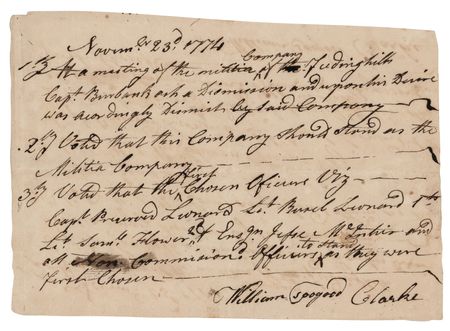 Novemr 23d 1774
1ly At a meeting of the militia Company of the feedinghills
Capt. Burbank ask a Dismission and upon his Desire
was acordingly Dismist by said Company
2ly Voted that this Company should stand as the
Militia Company
3ly Voted that the first Chosen Oficers Viz
Capt Leonard Lt. Leonard
Lt. Saml. Flower & Ensgn Jesse and
all Commisiond Officers to stand as they were
first Chosen
William Clarke